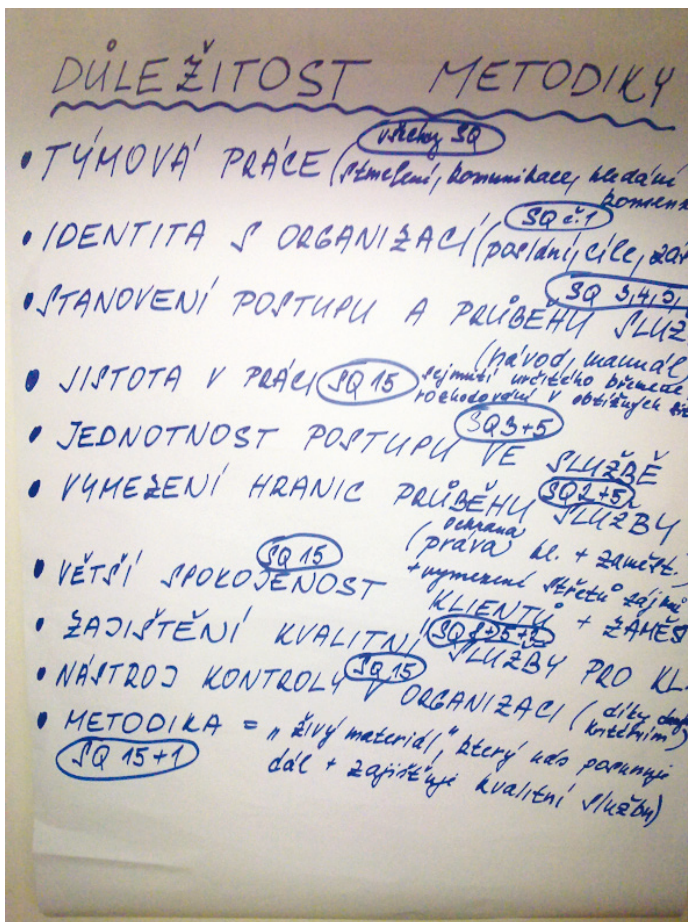 DŮLEŽITOST METODIKY
všechny SQ
• TÝMOVÁ PRÁCE (stmelení, komunikace, hledání
SQ č.1
• IDENTITA S ORGANIZACÍ (poslání, cíle,
SQ 3,4,5,
• STANOVENÍ POSTUPU A PRŮBĚHU SLUŽ
(návod, manuál)
• JISTOTA V PRÁCI SQ 15 sejmutí určitého břemene
rozhodování v obtížných
SQ3+5
• JEDNOTNOST POSTUPU VE SLUŽBĚ
• VYMEZENÍ HRANIC PRŮBĚHU SLUŽBY SQ2+5
ochrana
(práva kl. + zaměst.)
+ vymezení střetů zájmů
SQ 15
• VĚTŠÍ SPOKOJENOST KLIENTŮ + ZAMĚS
• ZAJIŠTĚNÍ KVALITNÍ SLUŽBY PRO KL.
• NÁSTROJ KONTROLY V ORGANIZACI (díky
SQ 15
kritériím)
• METODIKA = "živý materiál", který nás posunuje
SQ 15+1
dál + zajišťuje kvalitní službu)